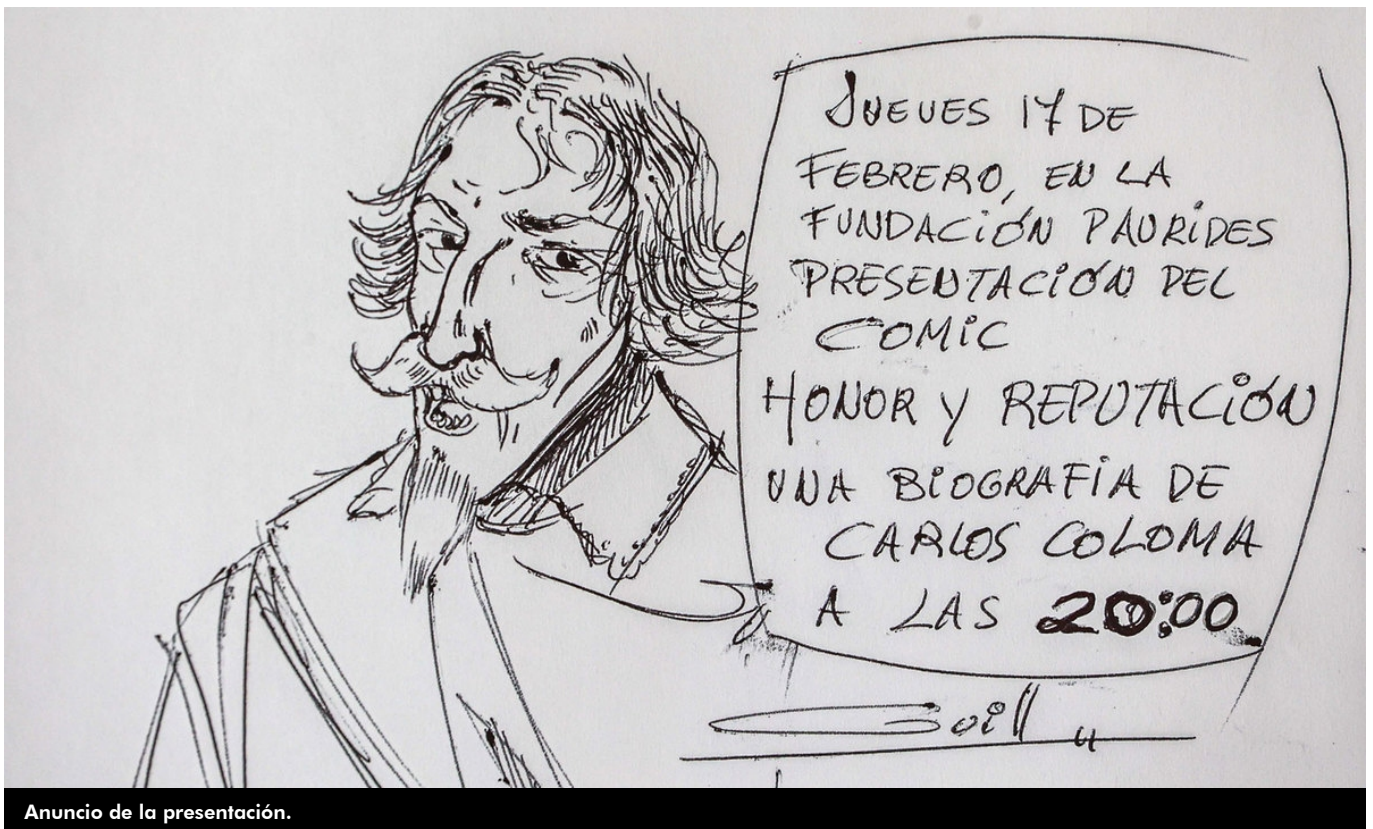 JUEVES 17 DE
FEBRERO, EN LA
FUNDACIÓN PAURIDES
PRESENTACIÓN DEL
COMIC
HONOR Y REPUTACIÓN
UNA BIOGRAFÍA DE
CARLOS COLOMA
A LAS 20:00
Anuncio de la presentación.